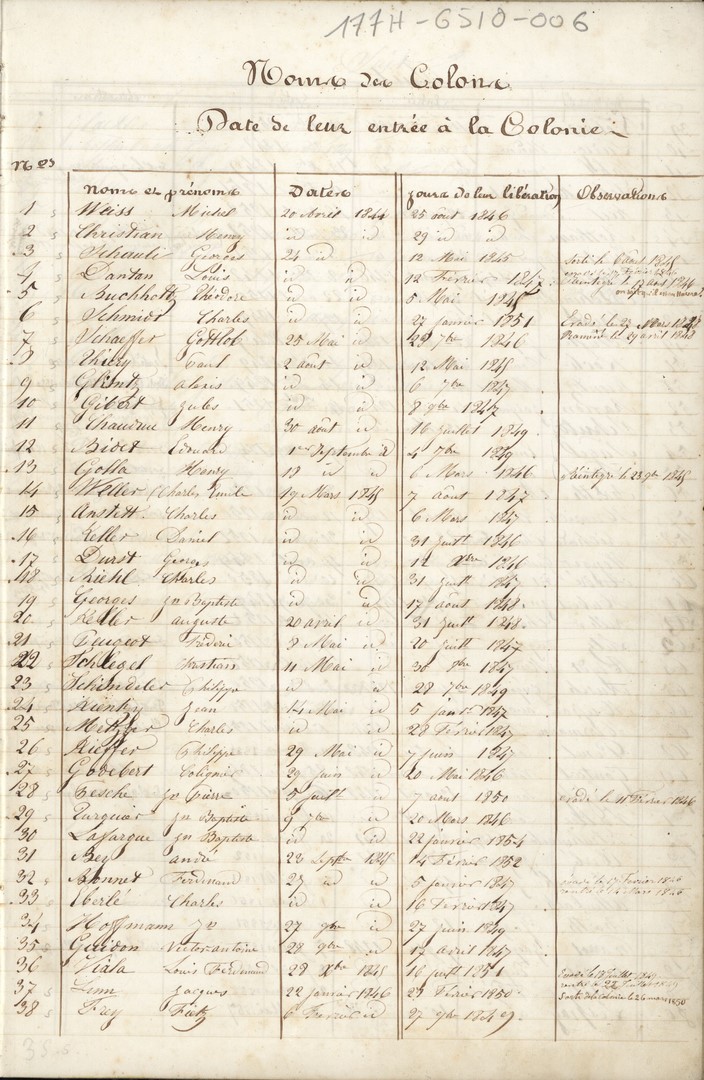 177H-6510-006
Noms des Colons
Date de leur entrée à la Colonie
Nos
noms et prénoms Dates jours de leur libération Observations
1 s Weiss Michel 20 Avril 1844 25 août 1846
2 s Christian Henry id id 29 id id
3 s Schouli Georges 24 id 12 Mai 1845 sorti le 6 août 1845
4 s Danton Louis id id 12 Février 1847 réintégré le 17 août 1846
5 s Buchholtz Théodore id id 5 Mai
6 s Schmidt Charles id id 27 janvier 1851 Evadé le 27 Mars
7 s Schaeffer Gottlob 25 Mai id 29 7bre 1846 Ramené le 29 avril 1848
8 s Thiery Paul 2 août id 12 Mai 1845
9 s Glintz alexis id id 6 7bre 1847
10 s Gibert jules id id 8 9bre 1847
11 s Henry 30 août id 16 juillet 1849
12 s Bidet Edouard 1er Septembre id 4 7bre 1849
13 s Golla Henry 18 id id 6 Mars 1846 réintégré le 23 9bre 1845
14 s Weller Charles Emile 19 Mars 1845 7 août 1847
15 s Anstett Charles id id 6 Mars 1847
16 s Keller Daniel id 31 juillt 1846
17 s Durst Georges id id 12 1846
18 s Miehl Charles id id 31 juillt 1847
19 s Georges jn Baptiste id id 17 août 1848
20 s Keller auguste 20 avril id 31 juillt 1848
21 s Peugeot Fréderic 8 Mai id 20 juillt 1847
22 s Schlegel Christian 11 Mai id 30 9bre 1847
23 s Schindeler Philippe id id 28 7bre 1849
24 s Kientzy jean 14 Mai id 5 janvr 1847
25 s Metzger Charles id id 28 Février 1847
26 s Kieffer Philippe 29 Mai id 7 juin 1847
27 s Godebert Colignier 29 juin id 20 Mai 1846
28 s Pesche jn Pierre 5 juillt id 7 août 1850 évadé le 11 Février 1846
29 s Turquier jn Baptiste 9 7bre id 20 Mars 1846
30 s Lafargue jn Baptiste id id 22 janvier 1854
31 s Bey andré 23 Septbre 1845 14 Février 1852
32 s Bonnet Ferdinand 27 id id 5 janvier 1847 évadé le 17 Février 1846
rentré le 14 Mars 1846
33 s Eberlé Charles id id 16 Février 1847
34 s Hoffmann jn 27 9bre id 27 juin 1849
35 s Guidon Victor antoine 28 9bre id 17 avril 1847
36 s Viala Louis Ferdinand 28 Xbre 1845 10 juillt 1851 Evadé le 18 juillet 1849
rentré le 22 juillet 1849
37 s Lenn Jacques 22 janvier 1846 27 Février 1850 Sorti de la Colonie le 26 mars 1850
38 s Frey 6 Fevrier id 27 9bre 1849